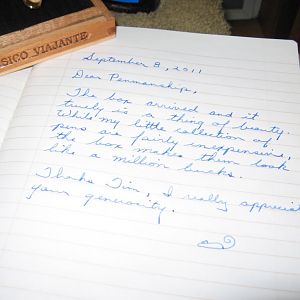 SICO VIAJANTE
September 8, 2011
Dear Penmanship,
The box arrived and it
truely is a thing of beauty.
While my little collection of
pens are fairly inexpensive,
the box makes them look
like a million bucks.
Thanks Tim, I really appreciat
your generosity.